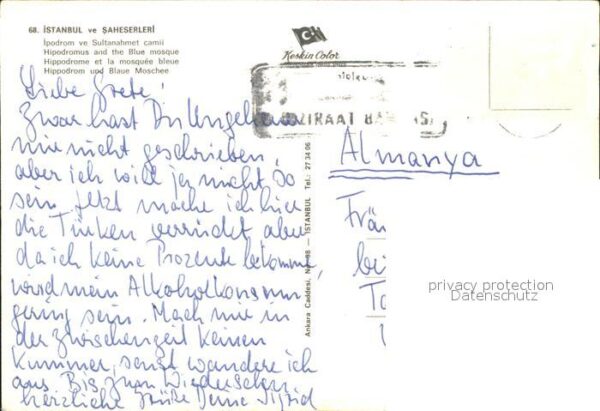 68. İSTANBUL ve ŞAHESERLERİ
İpodrom ve Sultanahmet camii
Hipodromus and the Blue mosque
Hippodrome et la mosquée bleue
Hippodrom und Blaue Moschee
Keskin Color
ZİRAAT BA
Ankara Caddesi, No. 98 — İSTANBUL Tel.: 27 34 06
Liebe Grete!
Zwar hast Du
mir nicht geschrieben,
aber ich will ja nicht so
sein. Jetzt mache ich hier
die Türken verrückt, aber
da ich keine Prozente bekomme
wird mein Alkoholkonsum
gering sein. Mach mir in
der Zwischenzeit keinen
Kummer, sonst wandere ich
aus. Bis zum Wiedersehen
herzliche Grüße Deine Sigrid
Almanya
Frä
bei
privacy protection
Datenschutz